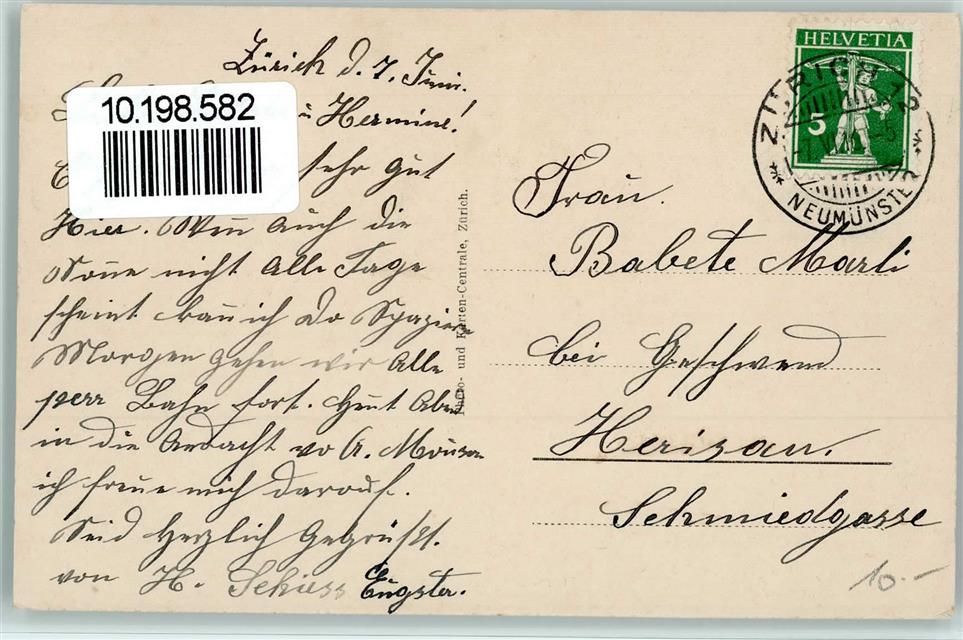 Zürich d. 7. Juni.
Hermine!
10.198.582
sehr gut
Hier. Wenn auch die
Sonne nicht Alle Tage
scheint kann ich Do Spaziere
Morgen gehen wir Alle
perr Bahn fort. Heut Aben
in die Andacht vo
ich freue mich darauf.
Seid Herzlich Gegrüsst.
von H. Schiess Eugster.
Photo- und Karten-Centrale, Zürich.
HELVETIA
5
ZÜRICH 12
NEUMÜNSTER
Frau.
Babete Marti
bei Geschwend
Herisau.
Schmiedgasse
10.-